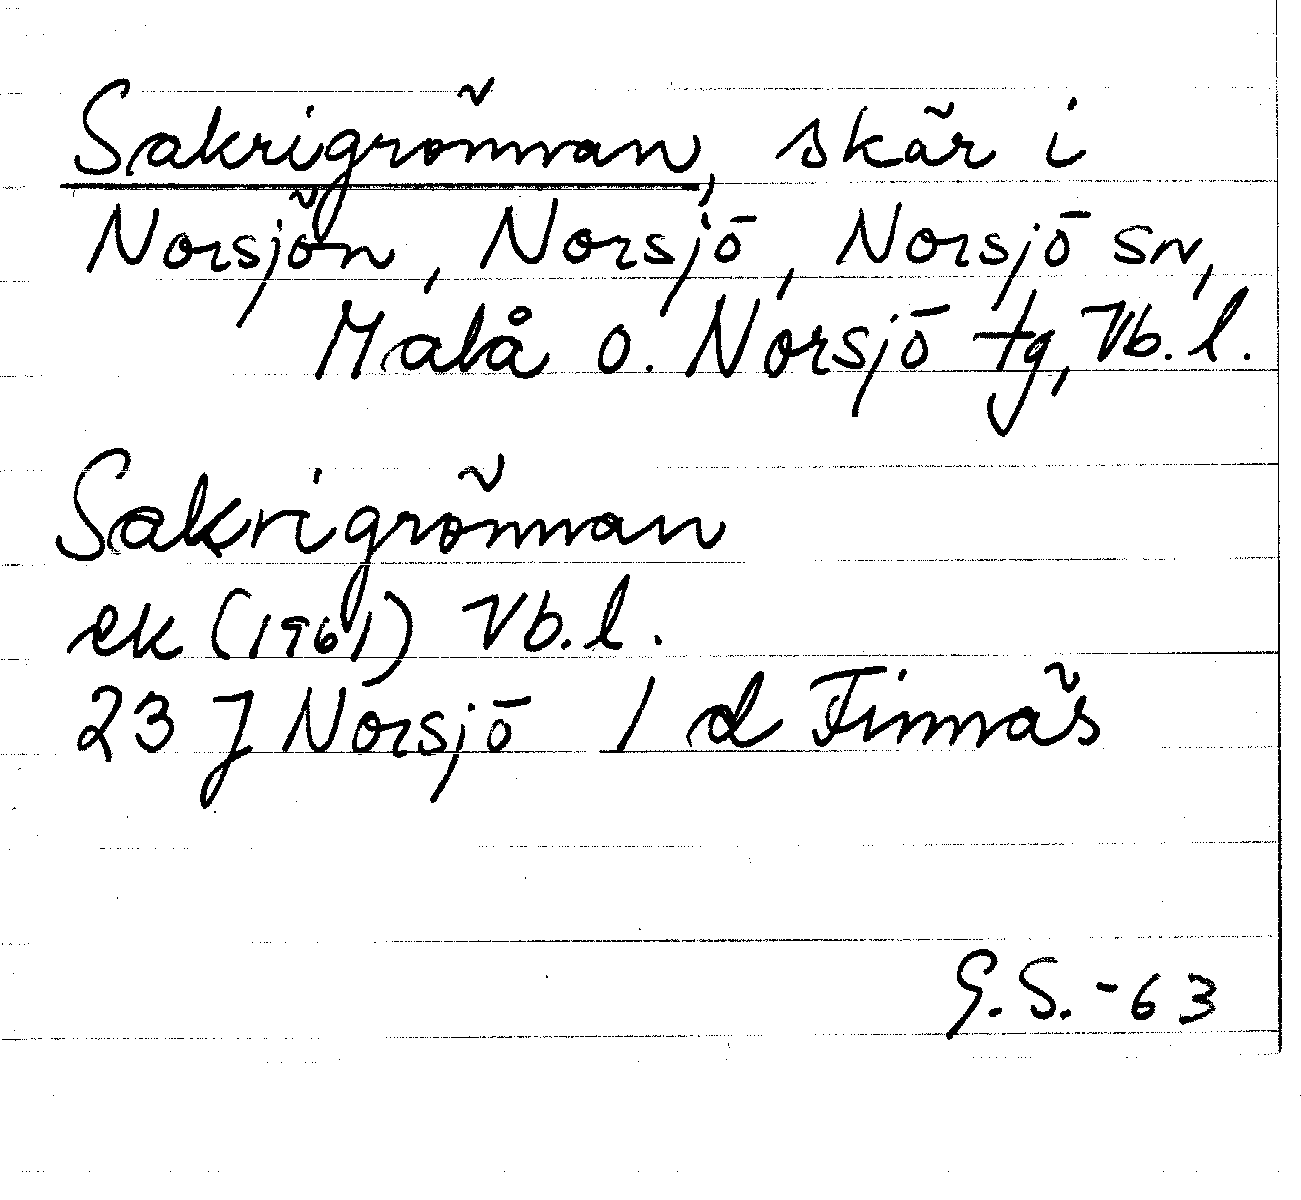 Sakrigrönnan, skär i
Norsjön, Norsjö, Norsjö sn,
Malå o. Norsjö tg, Vb. l.
Sakrigrönnan
ek (1961) Vb. l.
23 J Norsjö 1 d Finnäs
G. S. - 63